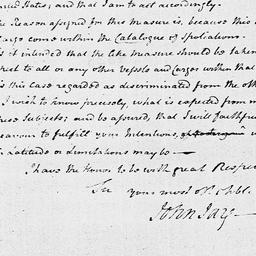 nited States; and that I am to act accordingly.
The Reason assigned for this measure is, because this
Cargo come within the Catalogue of Spoliations.
is it intended that the like measure should be taken
spect to all or any other vessels and Cargoes within that
is this Case regarded as discriminated from the oth
I wish to know precisely, what is expected from m
these Subjects; and be assured, that I will faithful
eavour to fulfill your Intentions, whatever
Latitude or limitations may be—
I have the Honor to be with great Respec
Sir your most obt. & hbl.
John Jay—